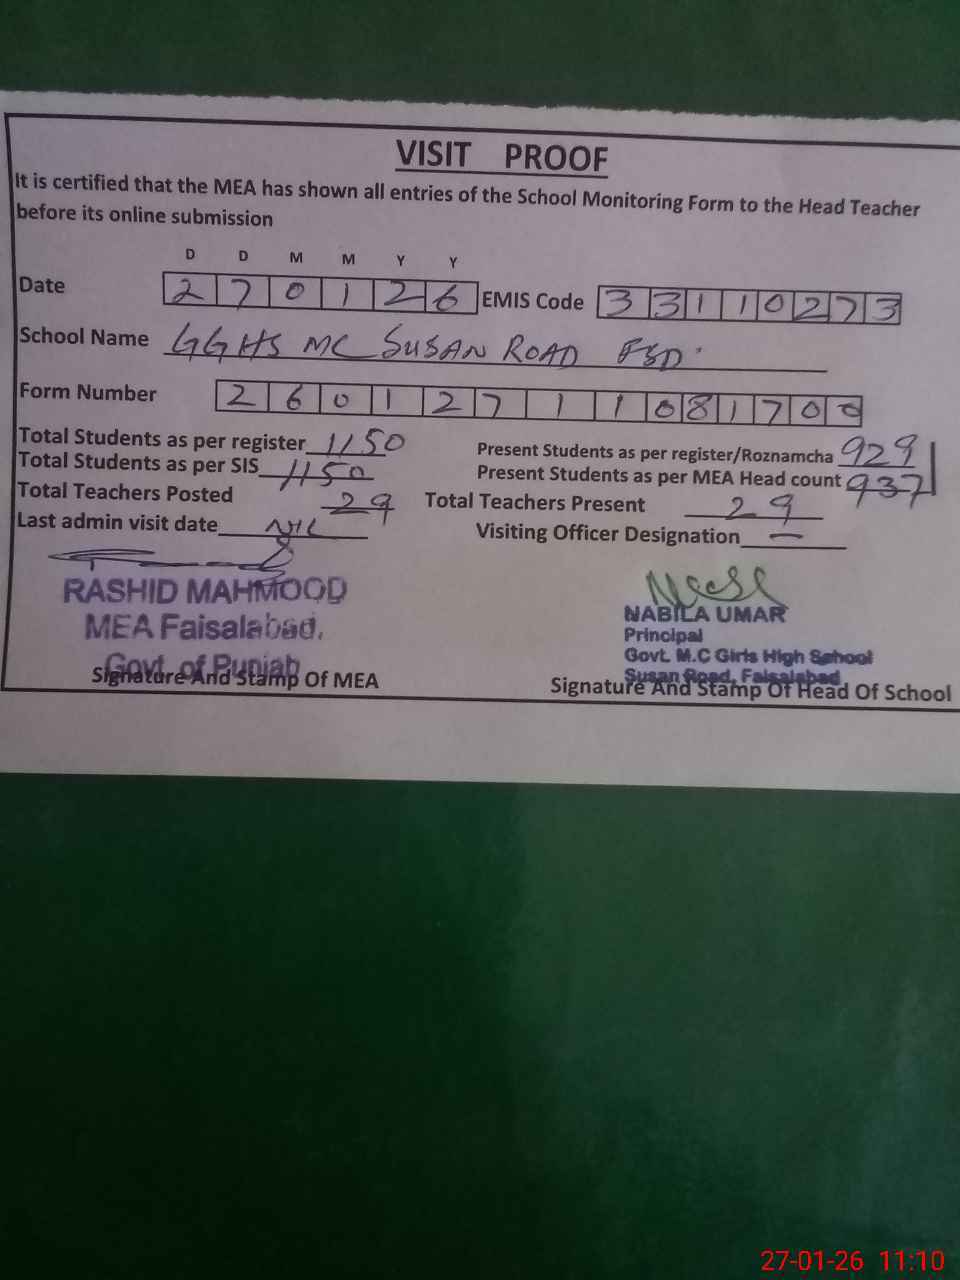 VISIT PROOF
It is certified that the MEA has shown all entries of the School Monitoring Form to the Head Teacher
before its online submission
D D M M Y Y
Date 2 7 0 1 2 6 EMIS Code 3 3 1 1 0 2 7 3
School Name GGHS MC SUSAN ROAD FSD.
Form Number 2 6 0 1 2 7 1 1 0 8 1 7 0 0
Total Students as per register 1150 Present Students as per register/Roznamcha 929
Total Students as per SIS 1150 Present Students as per MEA Head count 937
Total Teachers Posted 29 Total Teachers Present 29
Last admin visit date Visiting Officer Designation —
RASHID MAHMOOD
MEA Faisalabad.
Govt. of Punjab
Signature And Stamp Of MEA
NABILA UMAR
Principal
Govt. M.C Girls High School
Susan Road, Faisalabad
Signature And Stamp Of Head Of School
27-01-26 11:10